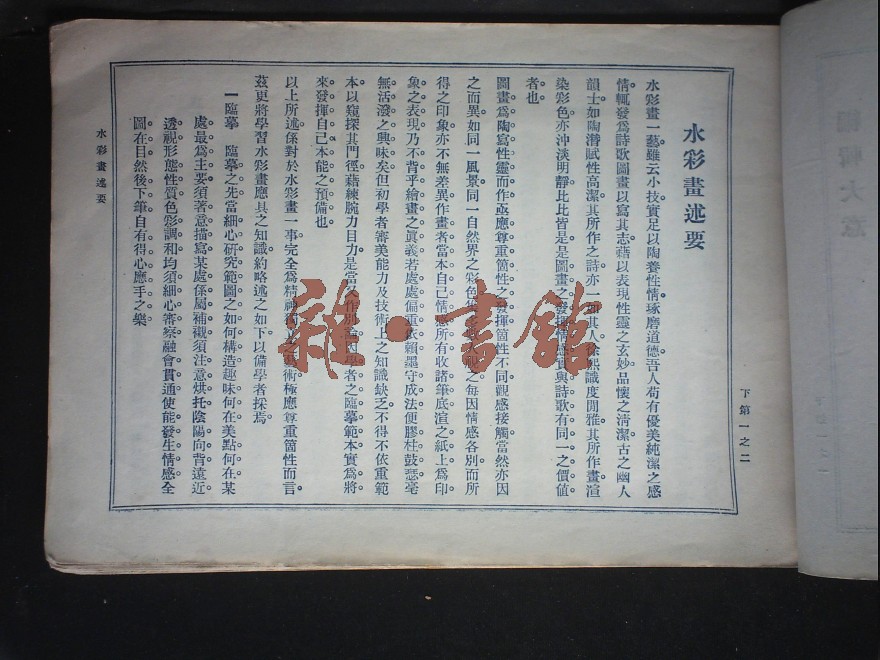 水彩畫述要
水彩畫一藝雖云小技實足以陶養性情琢磨道德吾人苟有優美純潔之感
情輒發爲詩歌圖畫以寫其志藉以表現性靈之玄妙品懷之清潔古之幽人
韻士如陶潛賦性高潔其所作之詩亦一如其人徐熙識度閒雅其所作畫渲
染彩色亦沖淡明靜比比皆是是圖畫之發揮情感實與詩歌有同一之價值
者也
圖畫爲陶寫性靈而作亟應尊重箇性之發揮箇性不同觀感接觸當然亦因
之而異如同一風景同一自然界之彩色 之每因情感各別而所
得之印象亦不無差異作畫者當本自己情感所有收諸筆底渲之紙上爲印
象之表現乃不背乎繪畫之眞義若處處偏重依賴墨守成法便膠柱鼓瑟毫
無活潑之興味矣但初學者審美能力及技術上之知識缺乏不得不依重範
本以窺探其門徑藉練腕力目力是當 作別論因學者之臨摹範本實爲將
來發揮自己本能之預備也
以上所述係對於水彩畫一事完全爲精神獨 術極應尊重箇性而言
茲更將學習水彩畫應具之知識約略述之如下以備學者採焉
一臨摹 臨摹之先當細心研究範圖之如何構造趣味何在美點何在某
處最爲主要須著意描寫某處係屬補襯須注意烘托陰陽向背遠近
透視形態性質色彩調和均須細心審察融會貫通使能發生情感全
圖在目然後下筆自有得心應手之樂
水彩畫述要
下第一之二
雜·書館